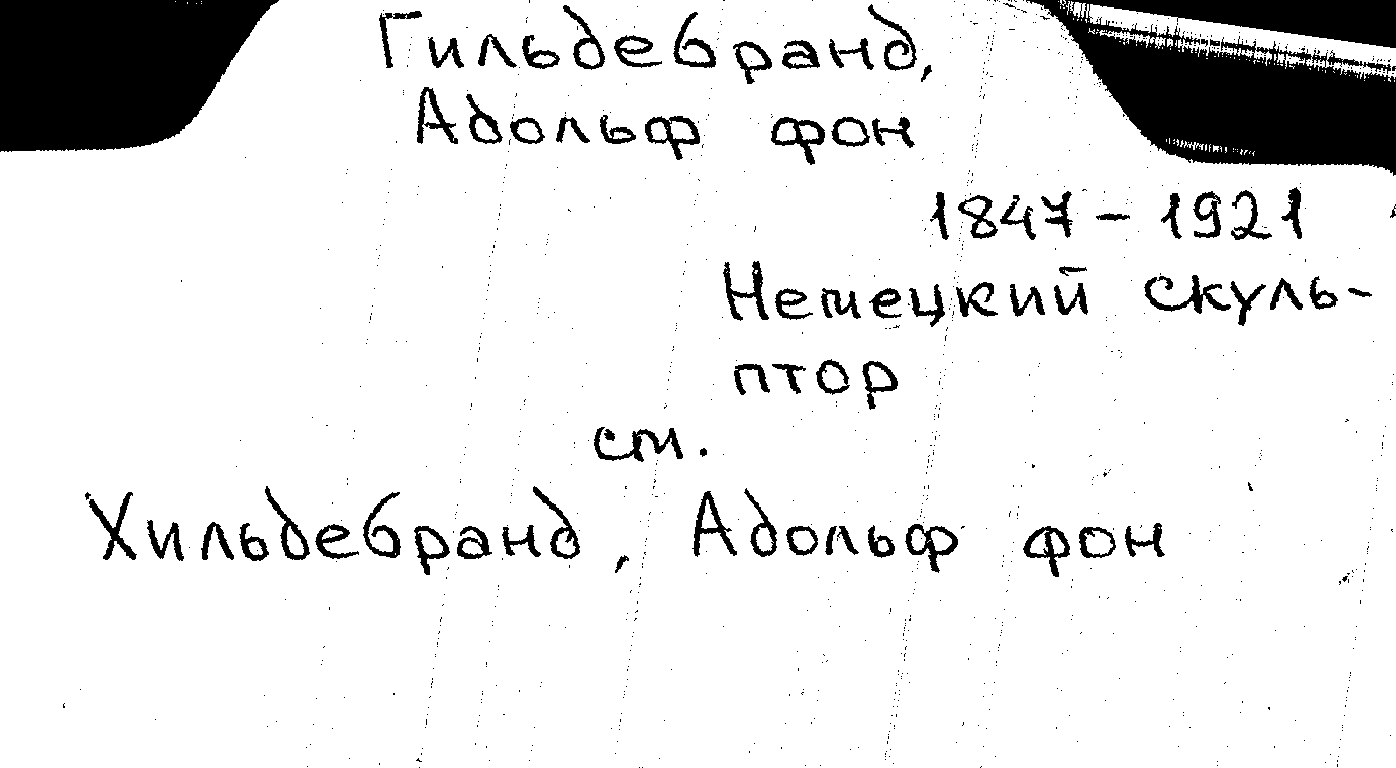 Гильдебранд,
Адольф фон
1847 - 1921
Немецкий скуль-
птор
см.
Хильдебранд, Адольф фон